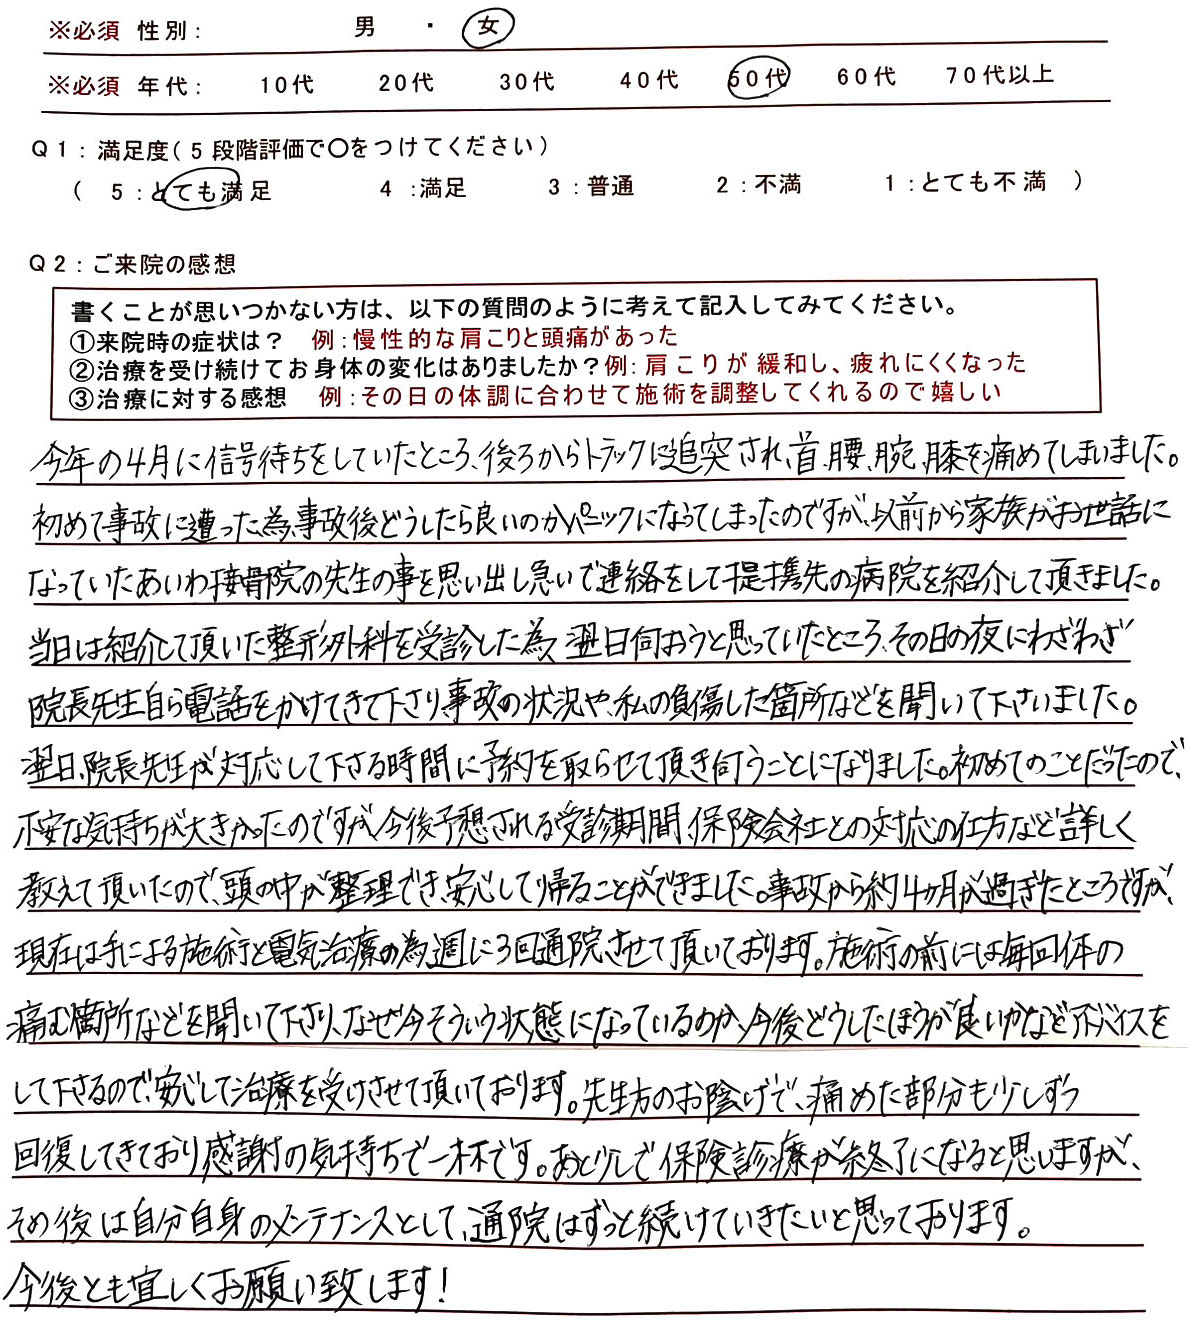 ※必須 性別: 男 ・ 女
※必須 年代: 10代 20代 30代 40代 50代 60代 70代以上
Q1:満足度(5段階評価で〇をつけてください)
( 5:とても満足 4:満足 3:普通 2:不満 1:とても不満 )
Q2:ご来院の感想
書くことが思いつかない方は、以下の質問のように考えて記入してみてください。
①来院時の症状は? 例:慢性的な肩こりと頭痛があった
②治療を受け続けてお身体の変化はありましたか?例:肩こりが緩和し、疲れにくくなった
③治療に対する感想 例:その日の体調に合わせて施術を調整してくれるので嬉しい
今年の4月に信号待ちをしていたところ、後ろからトラックに追突され、首、腰、腕、膝を痛めてしまいました。
初めて事故に遭った為、事故後どうしたら良いのかパニックになってしまったのですが、以前から家族がお世話に
なっていたあいわ接骨院の先生の事を思い出し急いで連絡をして提携先の病院を紹介して頂きました。
当日は紹介して頂いた整形外科を受診した為、翌日伺おうと思っていたところ、その日の夜にわざわざ
院長先生自ら電話をかけてきて下さり、事故の状況や、私の負傷した箇所などを聞いて下さいました。
翌日、院長先生が対応して下さる時間に予約を取らせて頂き伺うことになりました。初めてのことだったので、
不安な気持ちが大きかったのですが、今後予想される受診期間、保険会社との対応の仕方など詳しく
教えて頂いたので、頭の中が整理でき、安心して帰ることができました。事故から約4ヶ月が過ぎたところですが、
現在は手による施術と電気治療の為、週に3回通院させて頂いております。施術の前には毎回体の
痛む箇所などを聞いて下さり、なぜ今そういう状態になっているのか、今後どうしたほうが良いかなどアドバイスを
して下さるので、安心して治療を受けさせて頂いております。先生方のお陰げで、痛めた部分も少しずつ
回復してきており感謝の気持ちで一杯です。あと少しで保険診療が終了になると思いますが、
その後は自分自身のメンテナンスとして、通院はずっと続けていきたいと思っております。
今後とも宜しくお願い致します!